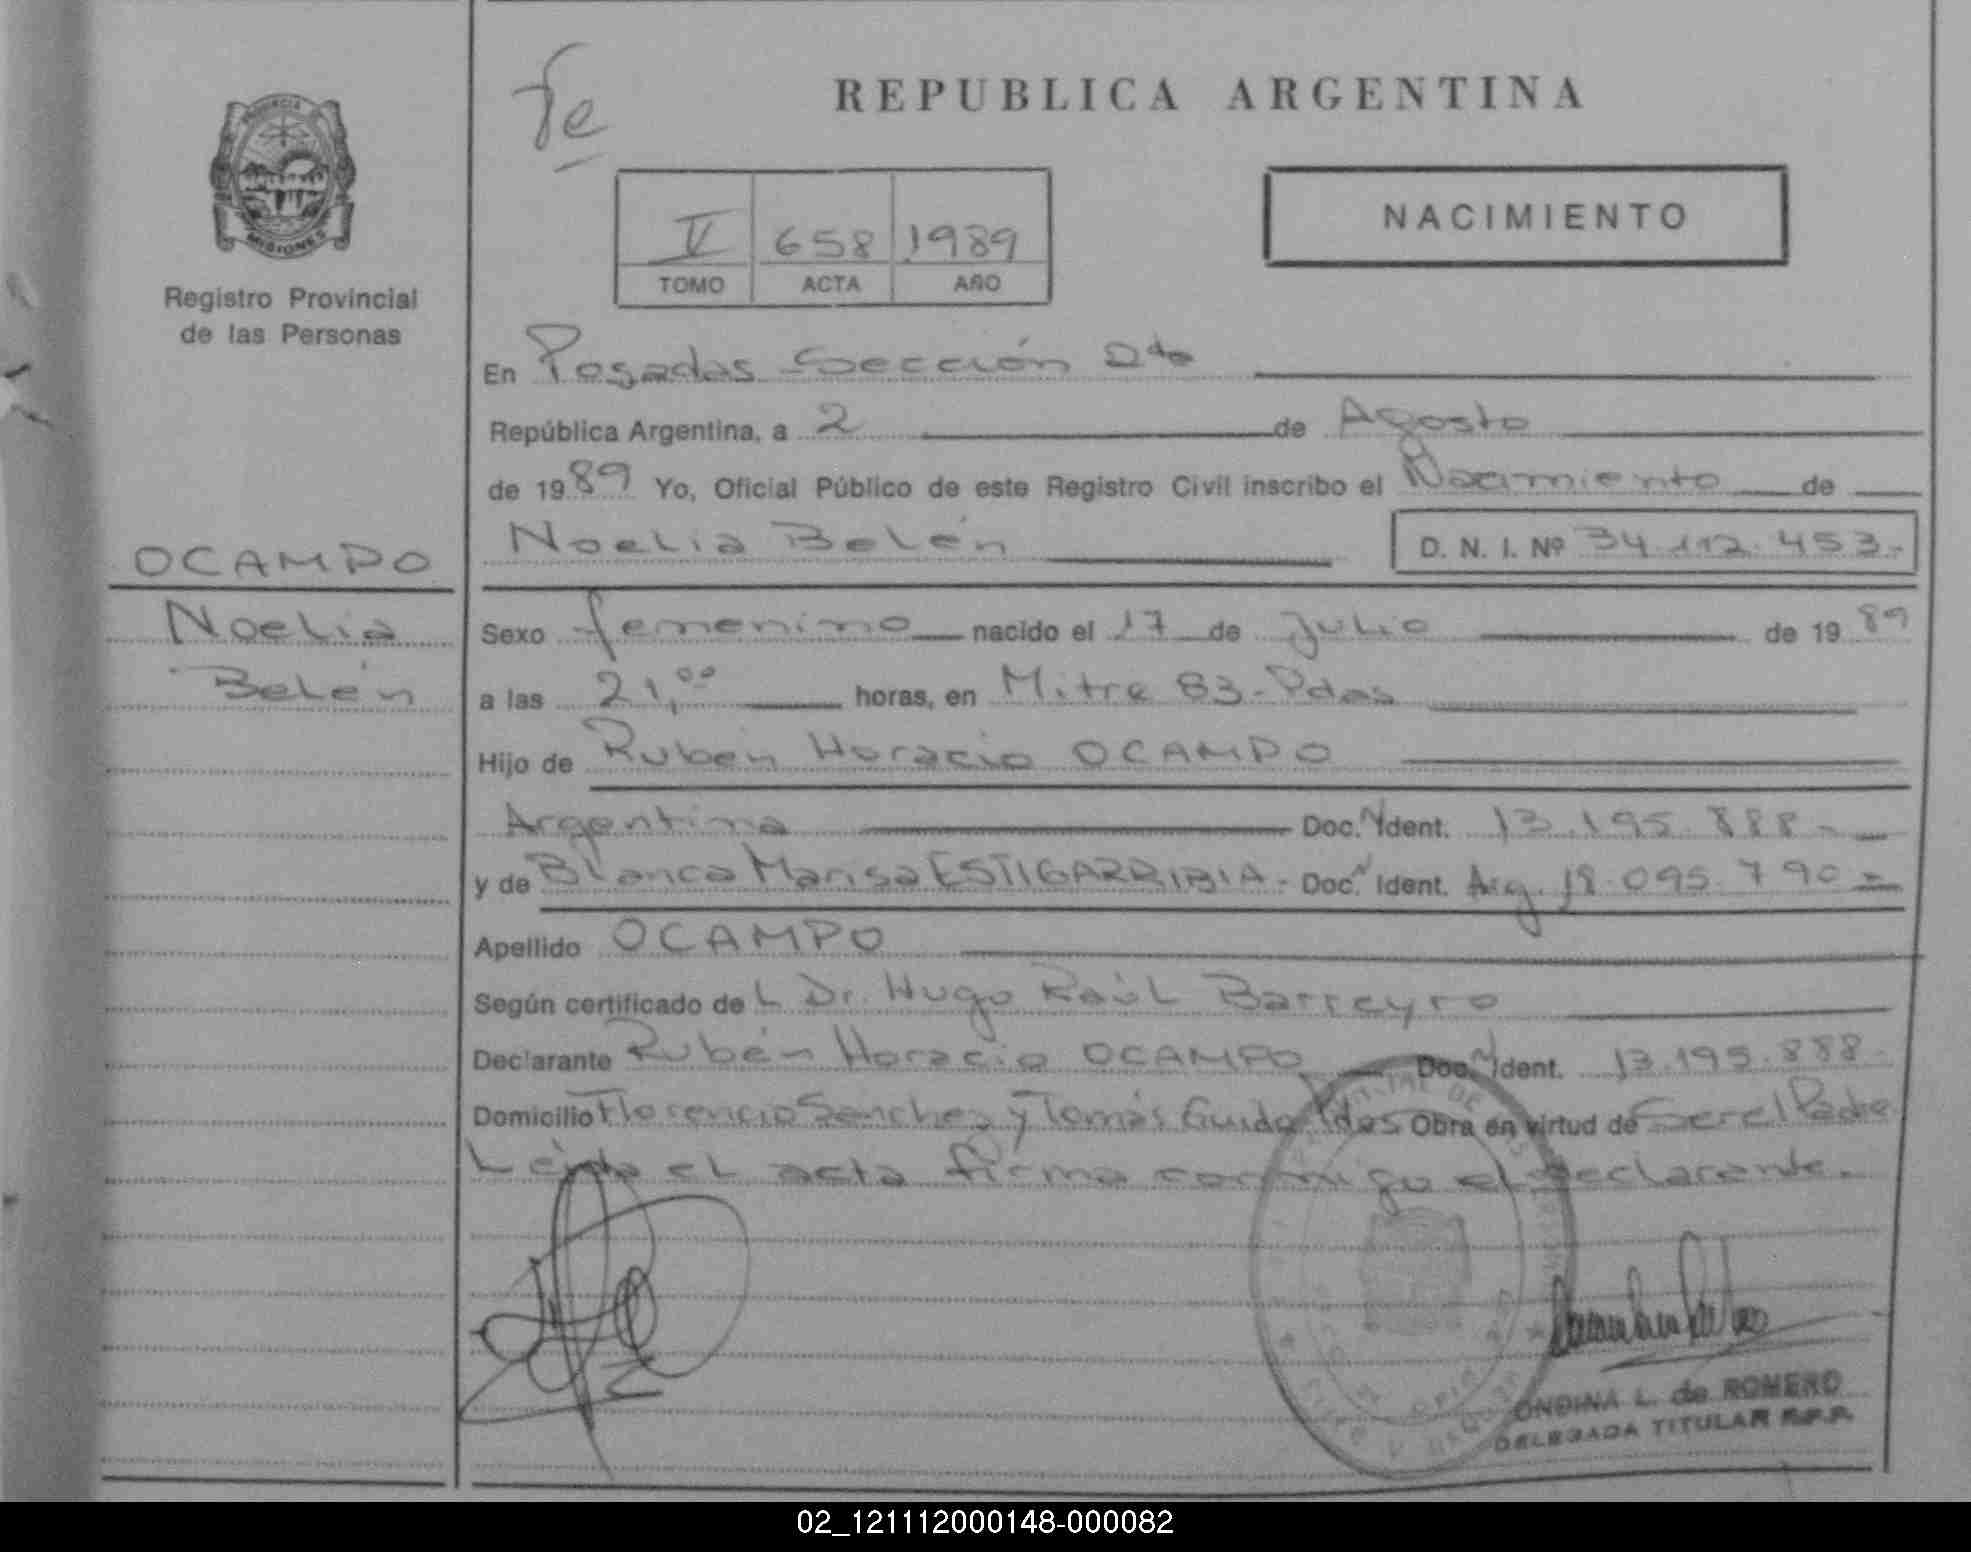 REPUBLICA ARGENTINA
Fe
NACIMIENTO
V 658 1989
TOMO ACTA AÑO
PROVINCIA
MISIONES
Registro Provincial
de las Personas
OCAMPO
Noelia
Belén
En Posadas Sección 2da
República Argentina, a 2 de Agosto
de 1989 Yo, Oficial Público de este Registro Civil inscribo el Nacimiento de
Noelia Belén D. N. I. Nº 34.112.453.-
Sexo femenino nacido el 17 de Julio de 1989
a las 21,00 horas, en Mitre 83-Pdas
Hijo de Rubén Horacio OCAMPO
Argentina Doc. N Ident. 13.195.888.-
y de Blanca Marisa ESTIGARRIBIA- Doc. N Ident. Arg. 18.095.790=
Apellido OCAMPO
Según certificado del Dr. Hugo Raúl Barreyro
Declarante Rubén Horacio OCAMPO Doc. N Ident. 13.195.888-
Domicilio Florencio Sanchez y Tomás Guido Pdas Obra en virtud de Ser el Padre
Leída el acta firma conmigo el declarante.-
ONDINA L. de ROMERO
DELEGADA TITULAR R.P.P.
02_121112000148-000082